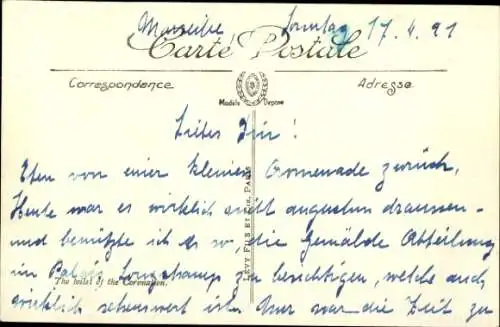 Marseille Sonntag 17.4.21
Carte Postale
Correspondance
Adresse
Modèle Déposé
Lieber
Eben von einer kleinen Promenade zurück,
Heute war es wirklich angenehm draussen
und benützte ich es so, die Gemälde Abteilung
im Palais Longchamp zu besichtigen, welche auch
wirklich sehenswert ist. Nur war die Zeit zu
The toilet of the Coronation.
LÉVY FILS ET CIE, PARIS